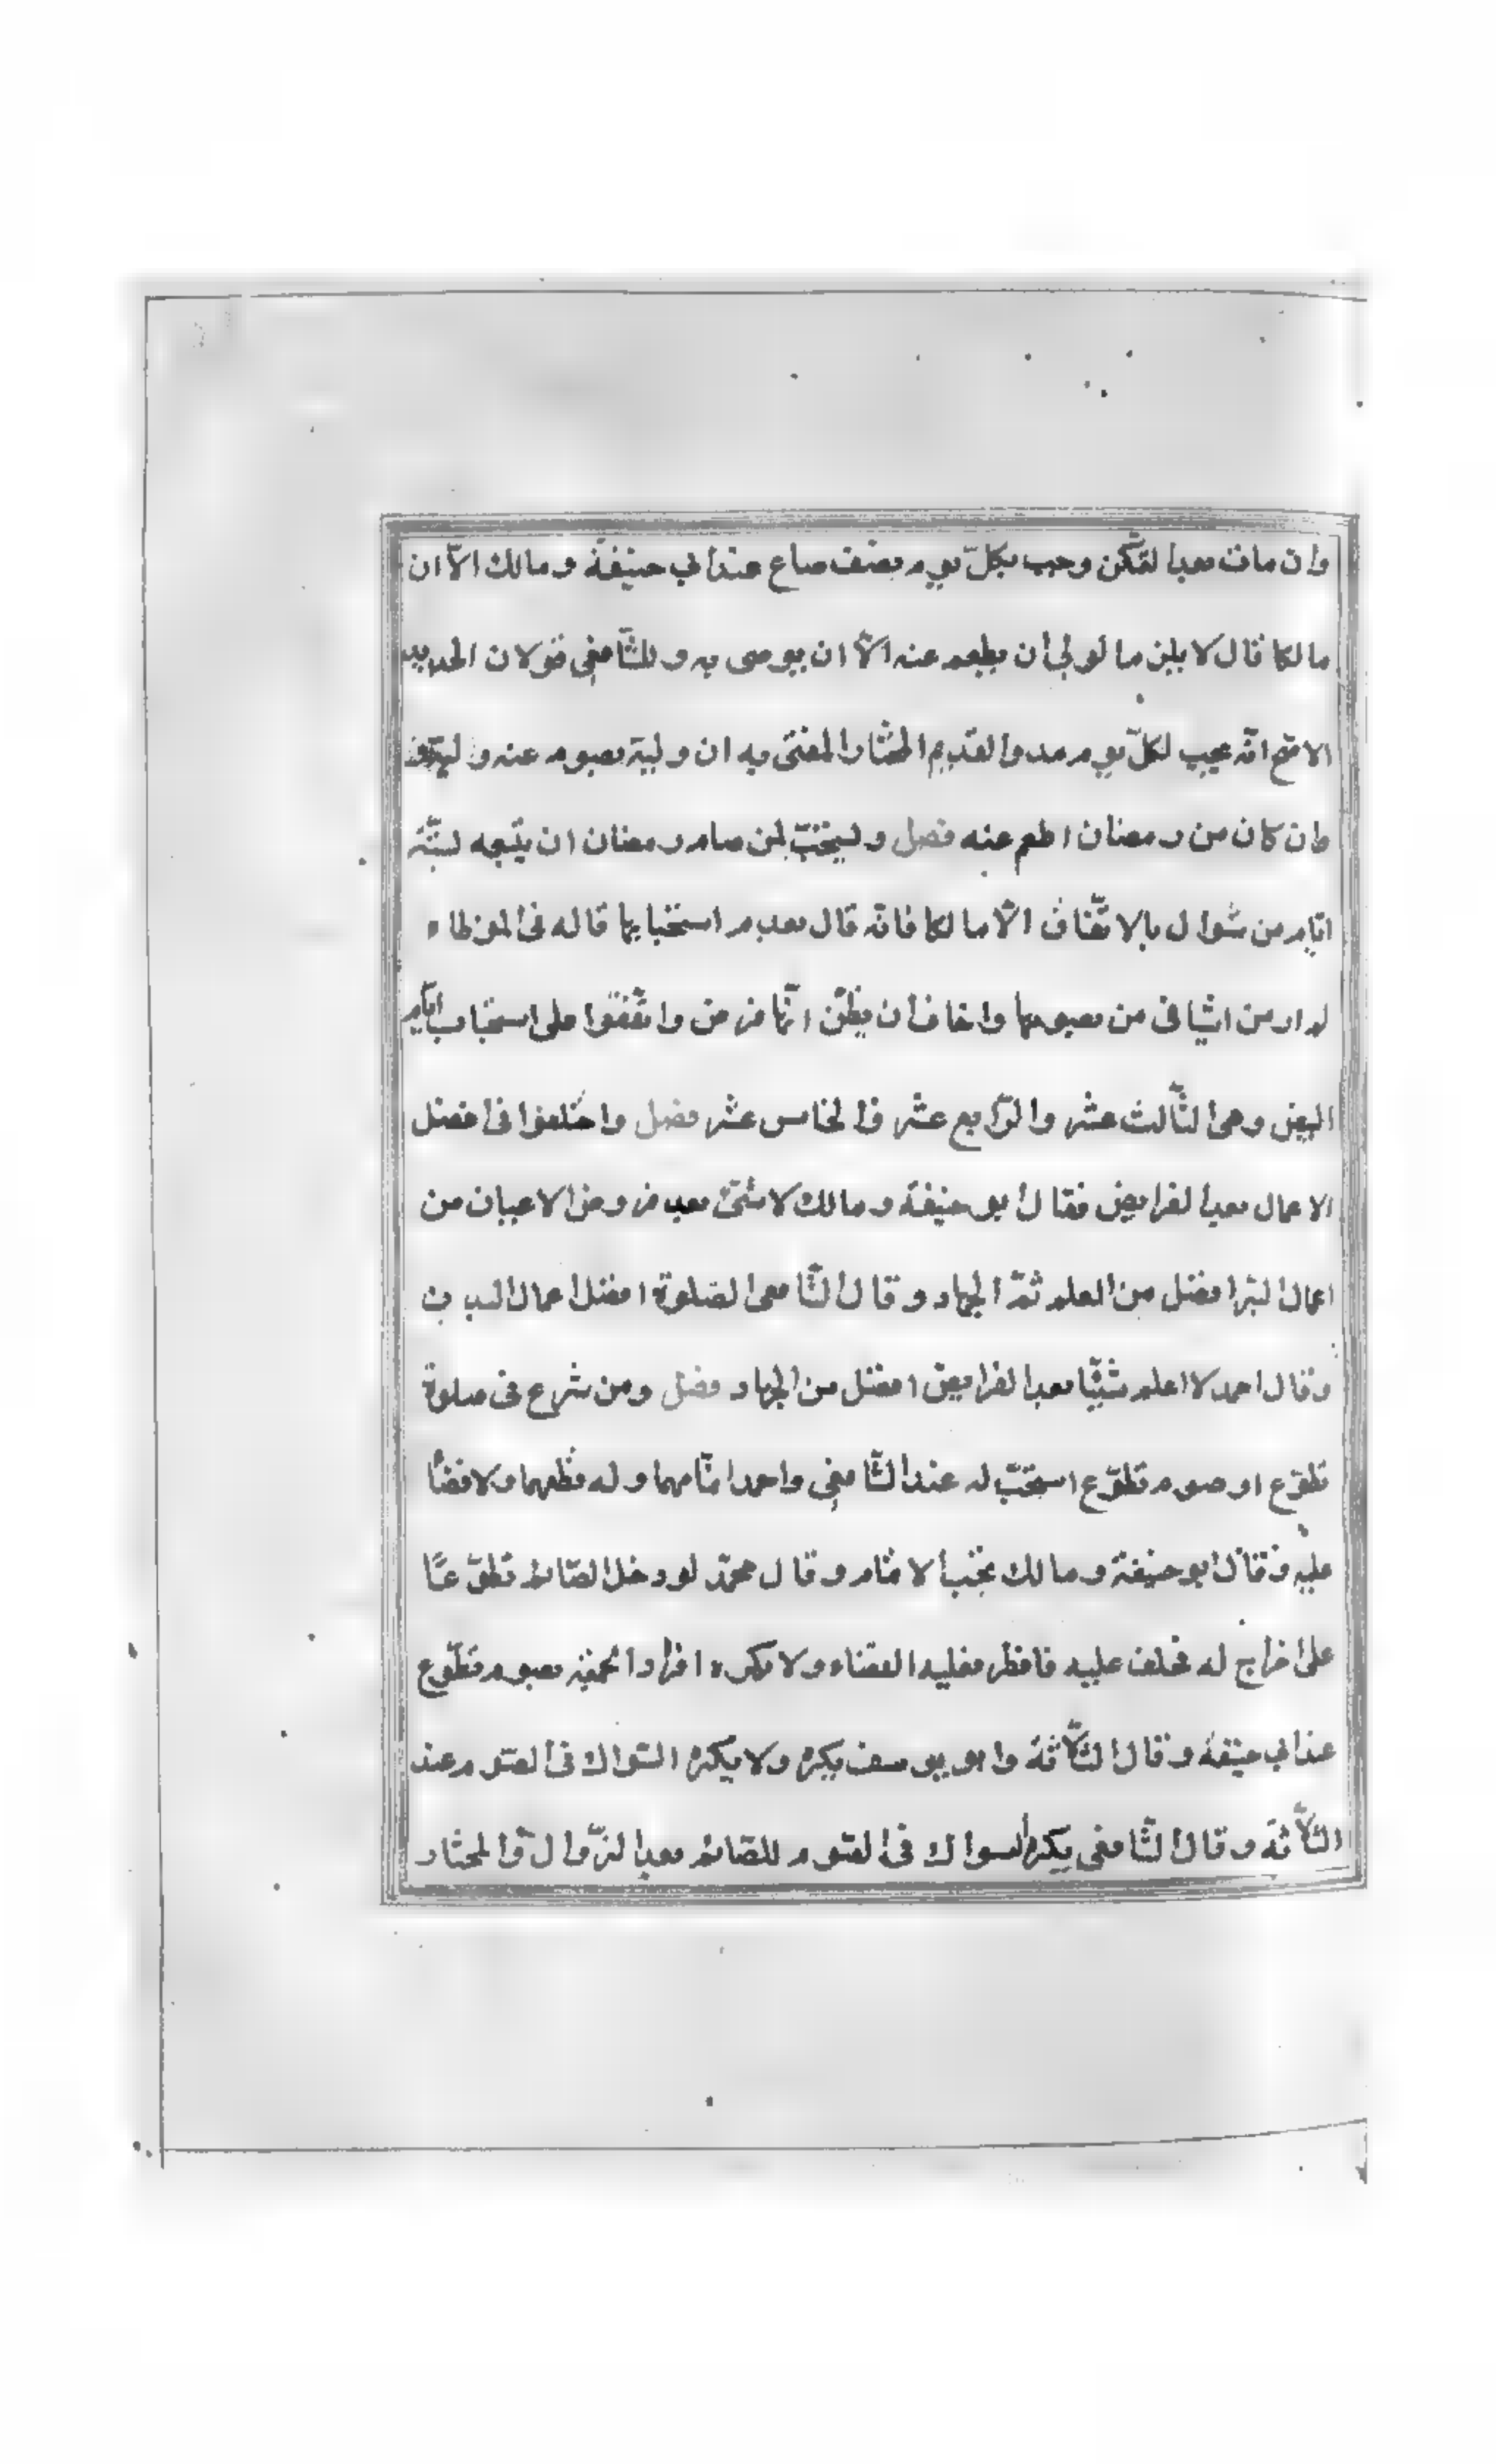 وان مات بعد التمكّن وجب بكلّ يوم نصف صاع عند ابي حنيفة ومالك الاّ ان
مالكا قال لا يلزم الولي أن يطعم عنه الاّ ان يوصى به وللشّافعي قولان الجديد
الاصح انّه يجب لكلّ يوم مد والقديم المختار المفتى به ان وليه يصوم عنه و
وان كان من رمضان اطعم عنه فصل ويستحبّ لمن صام رمضان ان يتبعه بستّة
ايّام من شوال بالاتّفاق الاّ مالكا فانّه قال بعدم استحبابها قاله فى الموطاء
لم ار من اشياخى من يصومها واخاف أن يظنّ انّها فرض واتّفقوا على استحباب ايّام
البيض وهى الثّالث عشر والرّابع عشر والخامس عشر فصل واختلفوا فى افضل
الاعمال بعد الفرايض فقال ابو حنيفة ومالك لا شئ بعد فروض الاعيان من
اعمال البرّ افضل من العلم ثمّ الجهاد وقال الشّافعى الصّلوة افضل اعمال البدن
وقال احمد لا اعلم شيئّا بعد الفرايض افضل من الجهاد فصل ومن شرع فى صلوة
تطوّع او صوم تطوّع استحبّ له عند الشّافعي واحمد اتمّامهما وله قطعهما ولا قضأ
عليه وقال ابو حنيفة ومالك يجب الاتمام وقال محمّد لو دخل الصّائم تطوّعًا
على اخ له فحلف عليه فافطر فعليه القضاء ولا يكره افراد الجمعة بصوم تطوّع
عند ابي حنيفة وقال الثّلاثة وابو يوسف يكره ولا يكره السّواك فى الصّوم عند
الثّلاثة وقال الشّافعى يكره السواك فى الصّوم للصّائم بعد الزّوال والمختار